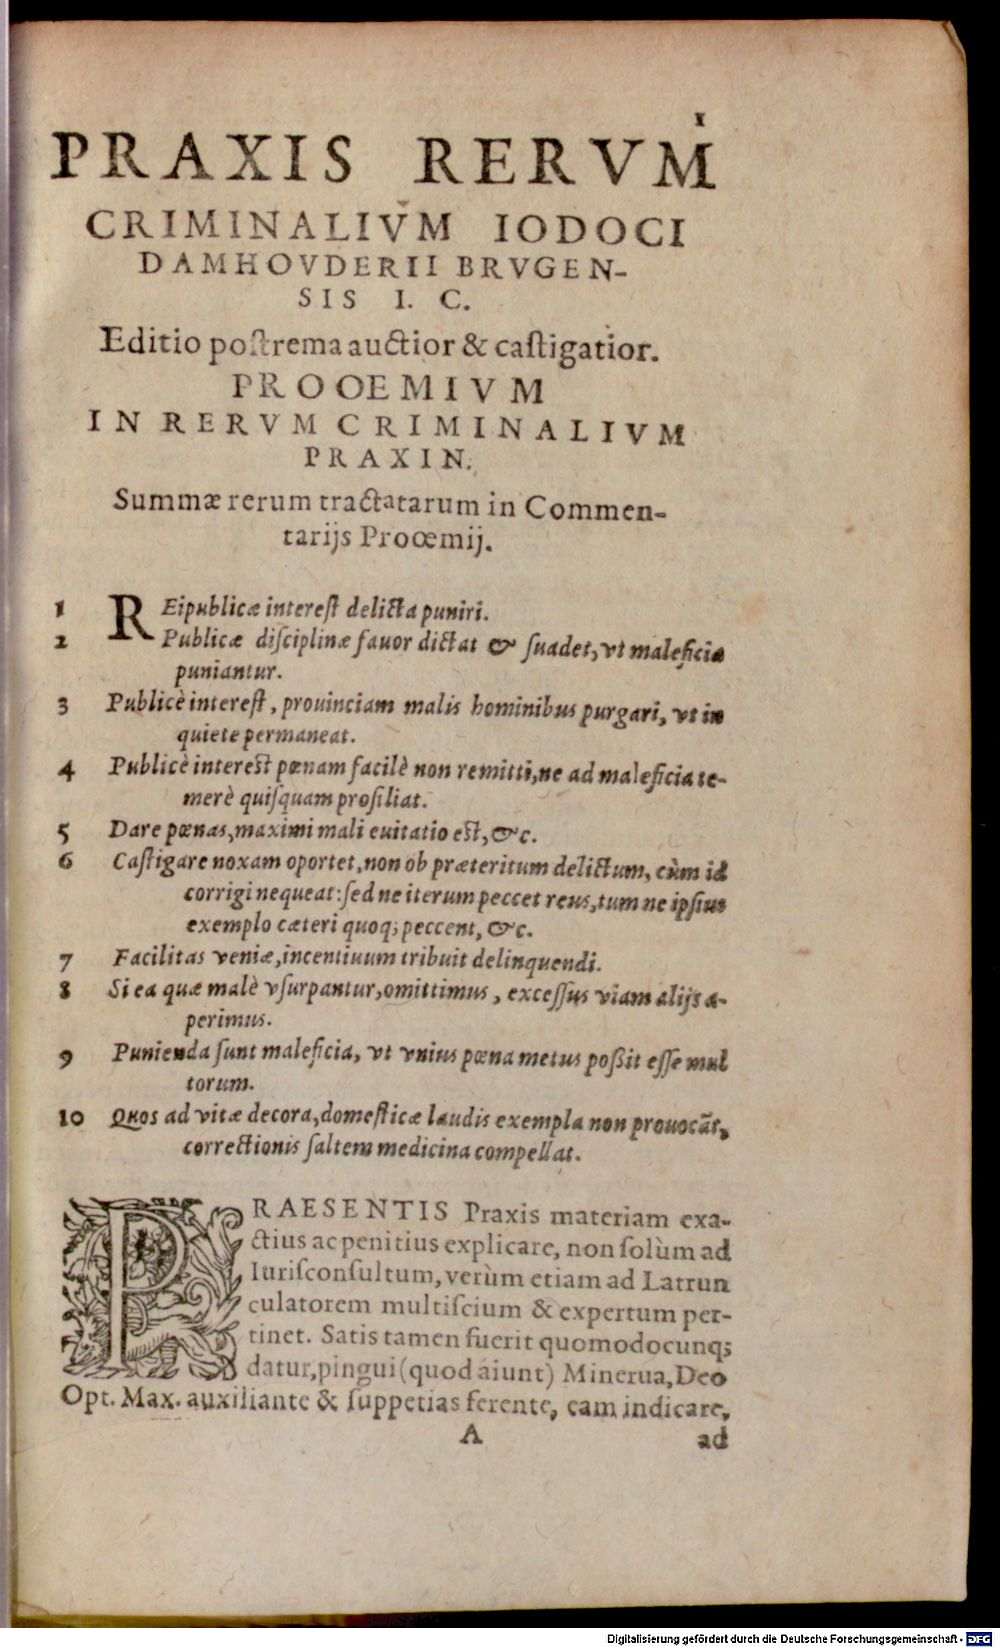 1
PRAXIS RERVM
CRIMINALIVM IODOCI
DAMHOVDERII BRVGEN-
SIS I. C.
Editio poſtrema auctior & caſtigatior.
PROOEMIVM
IN RERVM CRIMINALIVM
PRAXIN.
Summæ rerum tractatarum in Commen-
tarijs Proœmij.
1 REipublicæ intereſt delicta puniri.
2 Publicæ diſciplinæ fauor dictat & ſuadet, vt maleficia
puniantur.
3 Publicè intereſt, prouinciam malis hominibus purgari, vt in
quiete permaneat.
4 Publicè intereſt pœnam facilè non remitti, ne ad maleficia te-
merè quiſquam proſiliat.
5 Dare pœnas, maximi mali euitatio eſt, &c.
6 Caſtigare noxam oportet, non ob præteritum delictum, cùm id
corrigi nequeat: ſed ne iterum peccet reus, tum ne ipſius
exemplo cæteri quoq; peccent, &c.
7 Facilitas veniæ, incentiuum tribuit delinquendi.
8 Si ea quæ malè vſurpantur, omittimus, exceſſus viam alijs a-
perimus.
9 Punienda ſunt maleficia, vt vnius pœna metus poßit eſſe mul
torum.
10 Quos ad vitæ decora, domeſticæ laudis exempla non prouocãt,
correctionis ſaltem medicina compellat.
PRAESENTIS Praxis materiam exa-
ctius ac penitius explicare, non ſolùm ad
Iuriſconſultum, verùm etiam ad Latrun
culatorem multiſcium & expertum per-
tinet. Satis tamen fuerit quomodocunq;
datur, pingui (quod áiunt) Minerua, Deo
Opt. Max. auxiliante & ſuppetias ferente, eam indicare,
A ad
Digitalisierung gefördert durch die Deutsche Forschungsgemeinschaft - DFG